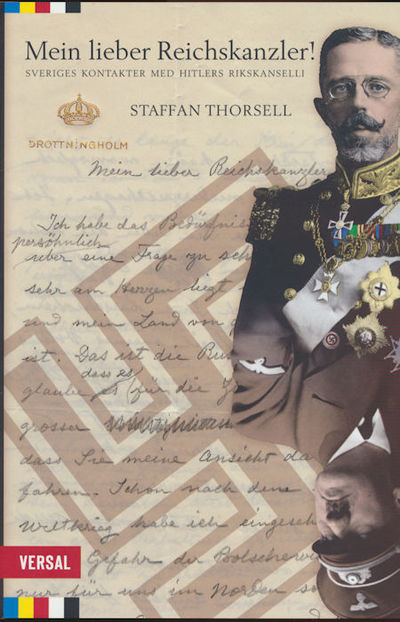 Mein lieber Reichskanzler!
SVERIGES KONTAKTER MED HITLERS RIKSKANSELLI
STAFFAN THORSELL
DROTTNINGHOLM
Mein lieber Reichskanzler
Ich habe das Bedürfnis
persöhnlich
ueber eine Frage zu
sehr am Herzen liegt
und mein Land von
ist. Das ist die
dass es
glaube für die
grosser
dass Sie meine Ansicht
fahren. Schon nach dem
Weltkrieg habe ich
VERSAL
Gefahr der
nur für uns im Norden